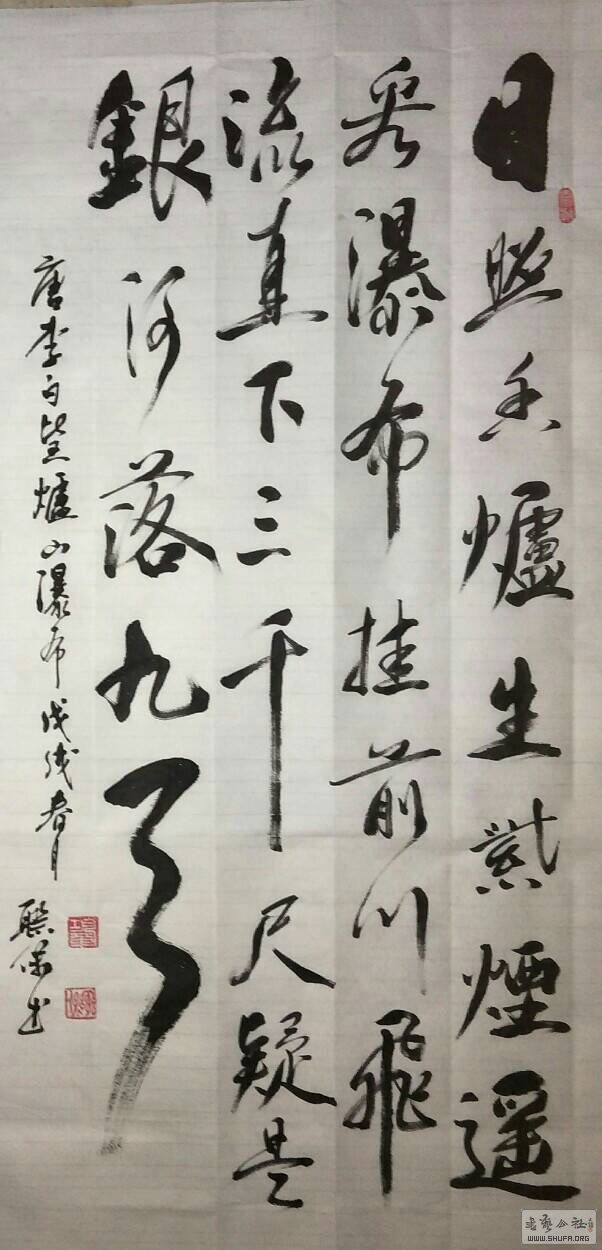 日照香爐生紫煙遥
看瀑布挂前川飛
流直下三千尺疑是
銀河落九天
唐李白望爐山瀑布戊戌春月
WWW.SHUFA.ORG